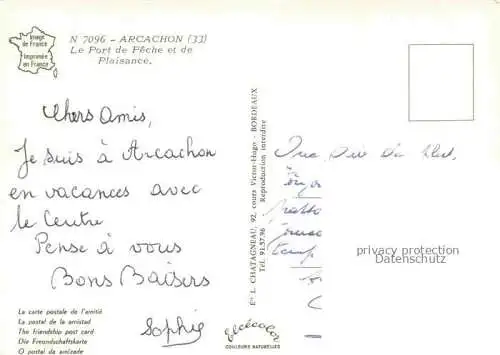 Image
de France
Imprimée
en France
N 7096 - ARCACHON (33)
Le Port de Pêche et de
Plaisance.
Chers Amis,
Je suis à Arcachon
en vacances avec
le Centre
Pense à vous
Bons Baisers
Sophie
La carte postale de l'amitié
La postal de la amistad
The friendship post card
Die Freundschaftskarte
O postal da amizade
Ets L. CHATAGNEAU, 92, cours Victor-Hugo - BORDEAUX
Tél. 91.57.96 Reproduction interdite
elcécolor
COULEURS NATURELLES
privacy protection
Datenschutz